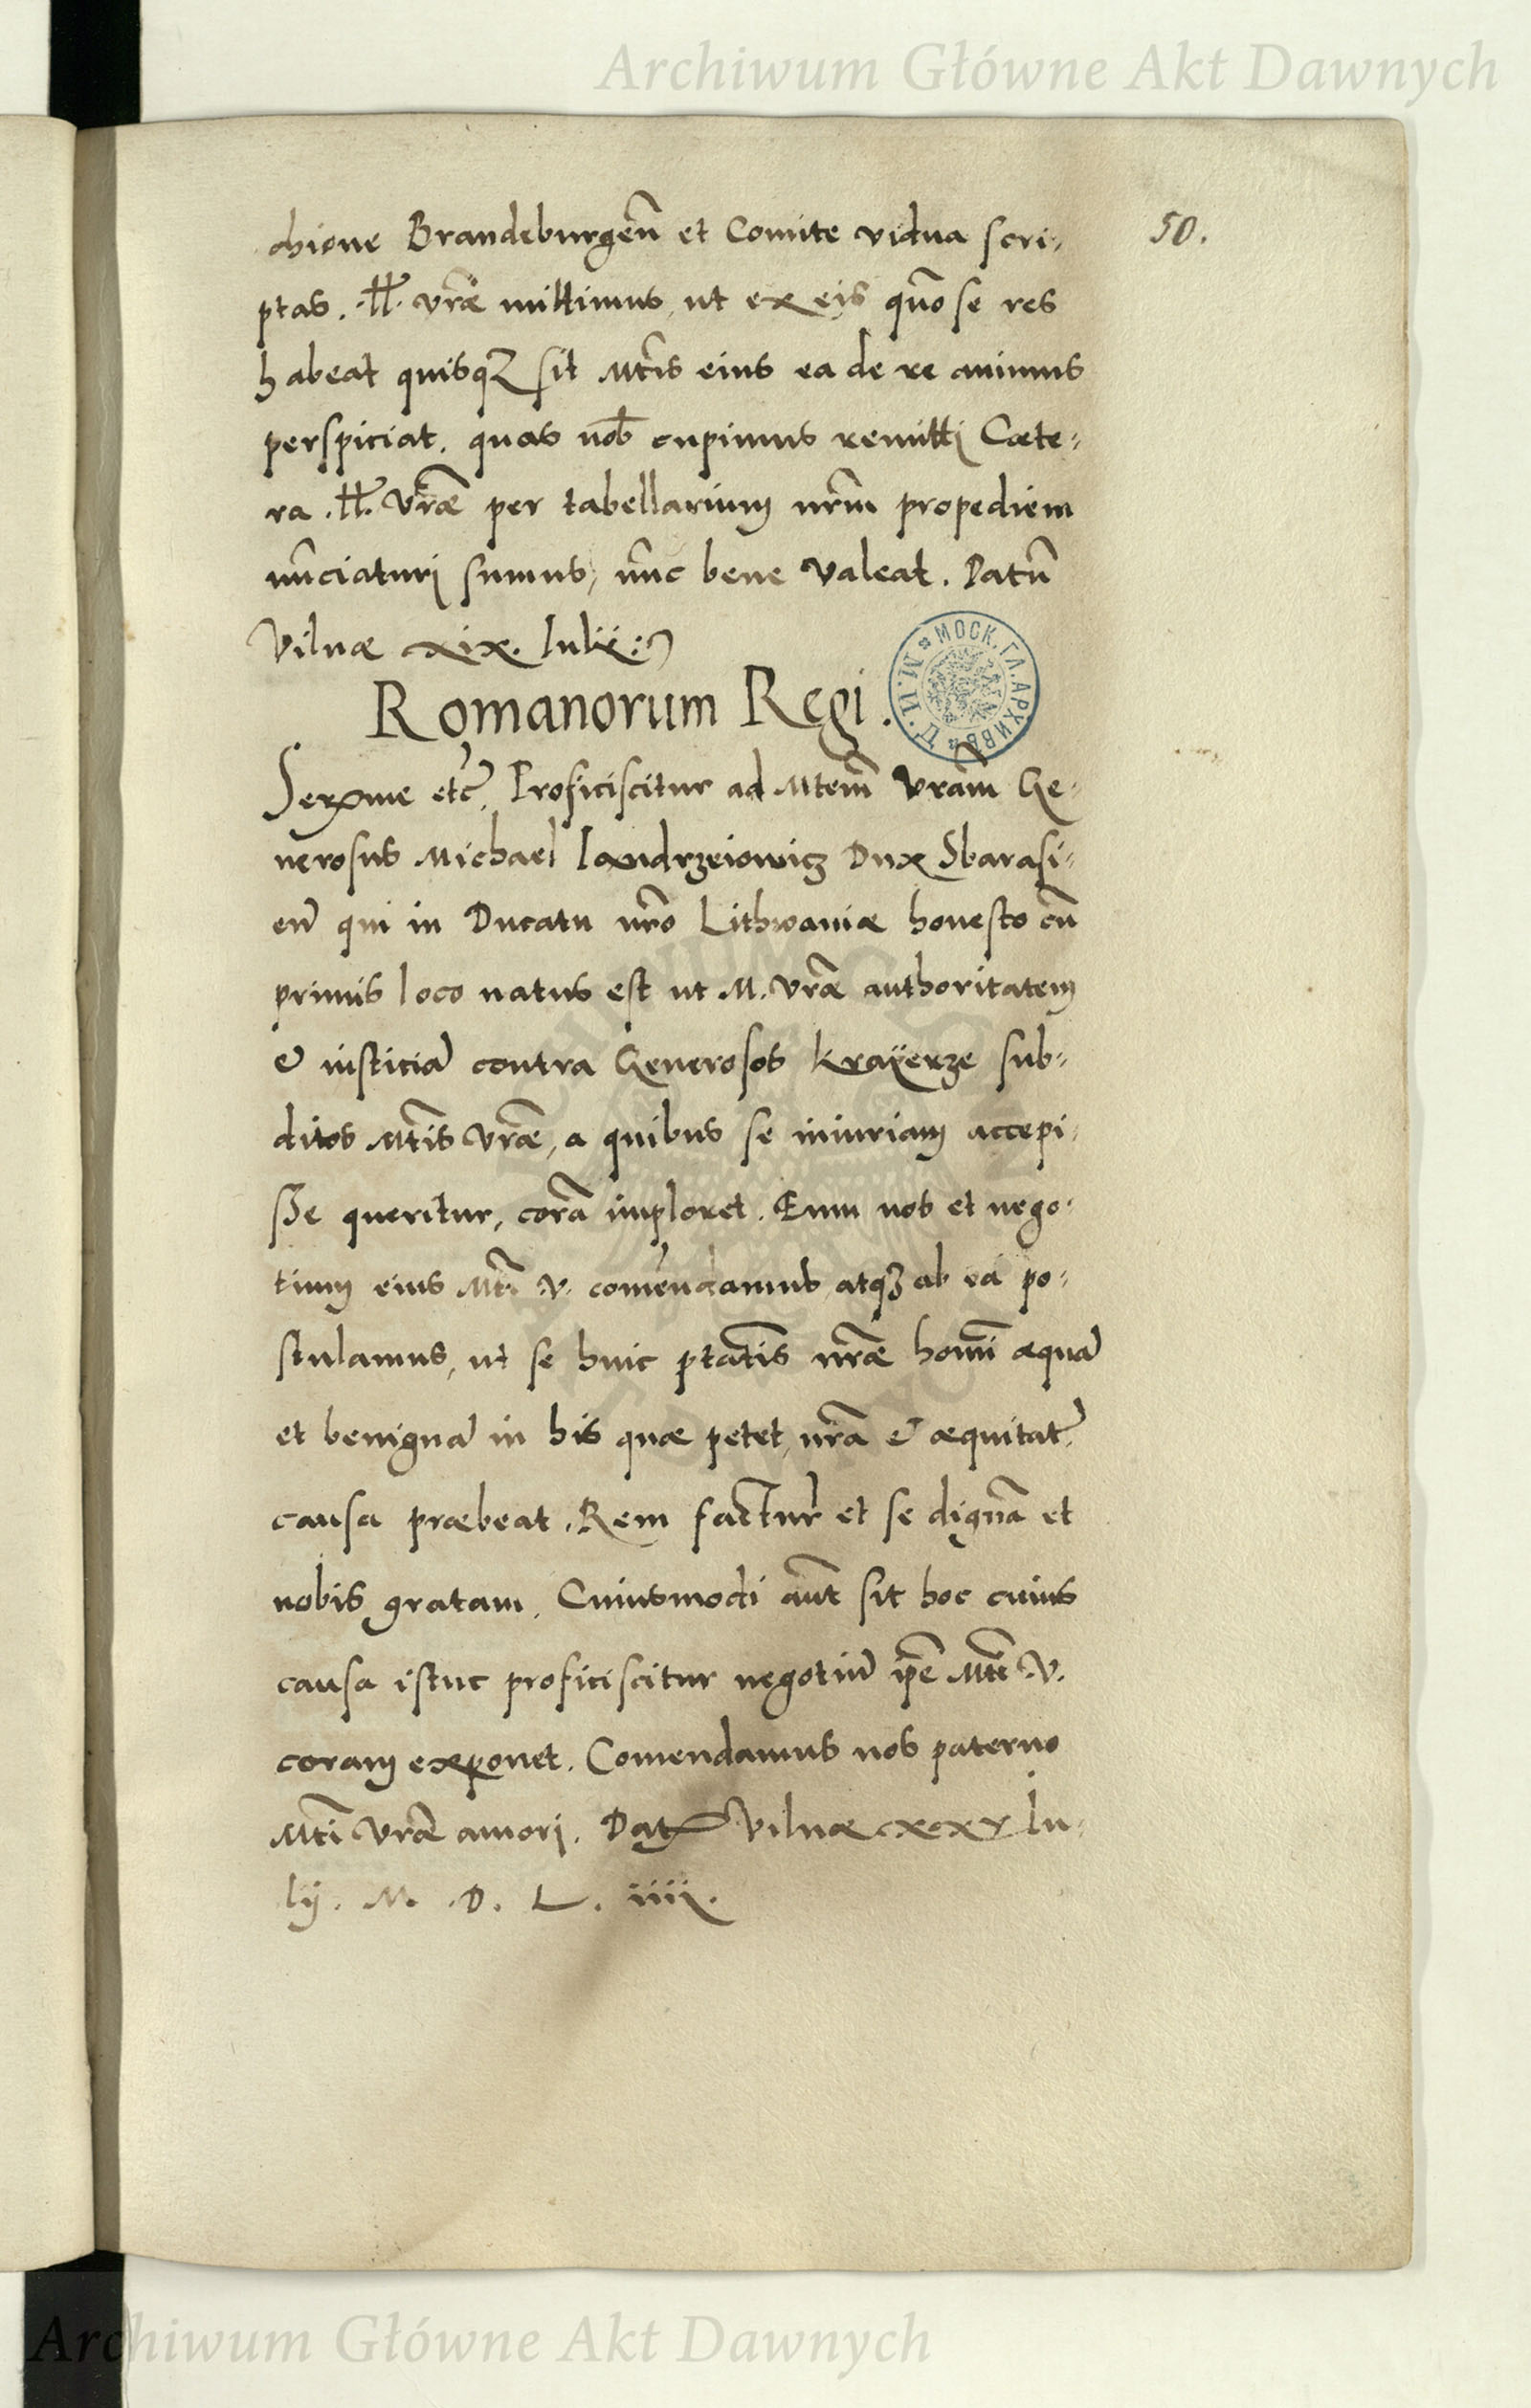 Archiwum Główne Akt Dawnych
50.
chione Brandeburgen̄ et Comite vidua scri-
ptas. Ill. vr̄æ mittimus, ut ex eis quō se res
habeat quisqꝫ sit Mtīs eius ea de re animus
perspiciat. quas nob̄ cupimus remitti Cæte-
ra Ill. Vr̄æ per tabellarium nr̄m propediem
nūnciaturi sumus, nūnc bene valeat. Datū
Vilnæ xix. Iulii:
Romanorum Regi.
Serx̄me etc̄. Proficiscitur ad Mtem̄ Vrām Ge-
nerosus Michael Iandrzeiowicz Dux Sbarasi-
en̄ qui in Ducatu nr̄o Lithwaniæ honesto cū
primis loco natus est ut M. Vr̄æ authoritatem
& iusticiā contra Generosos Kraÿerze sub-
ditos Mtīs Vr̄æ, a quibus se iniuriam accepi-
sse queritur, corā imploret. Eum nos et nego-
tium eius Mtī V. comēndamus, atqꝫ ab ea po-
stulamus, ut se huic ptātis nr̄æ homīni æquā
et benignā in his quæ petet, nr̄a & æquitat̄.
causa præbeat. Rem factur̄ et se dignā et
nobis gratam. Cuiusmodi aūt sit hoc cuius
causa istuc proficiscitur negotiū ip̄e Mtī V.
coram exponet. Comendamus nos paterno
Mtī Vr̄æ amori. Dat Vilnæ xxv Iu-
lij. M. D. L. iiii.
МОСК. ГЛ. АРХИВЪ М. И. Д.
Archiwum Główne Akt Dawnych